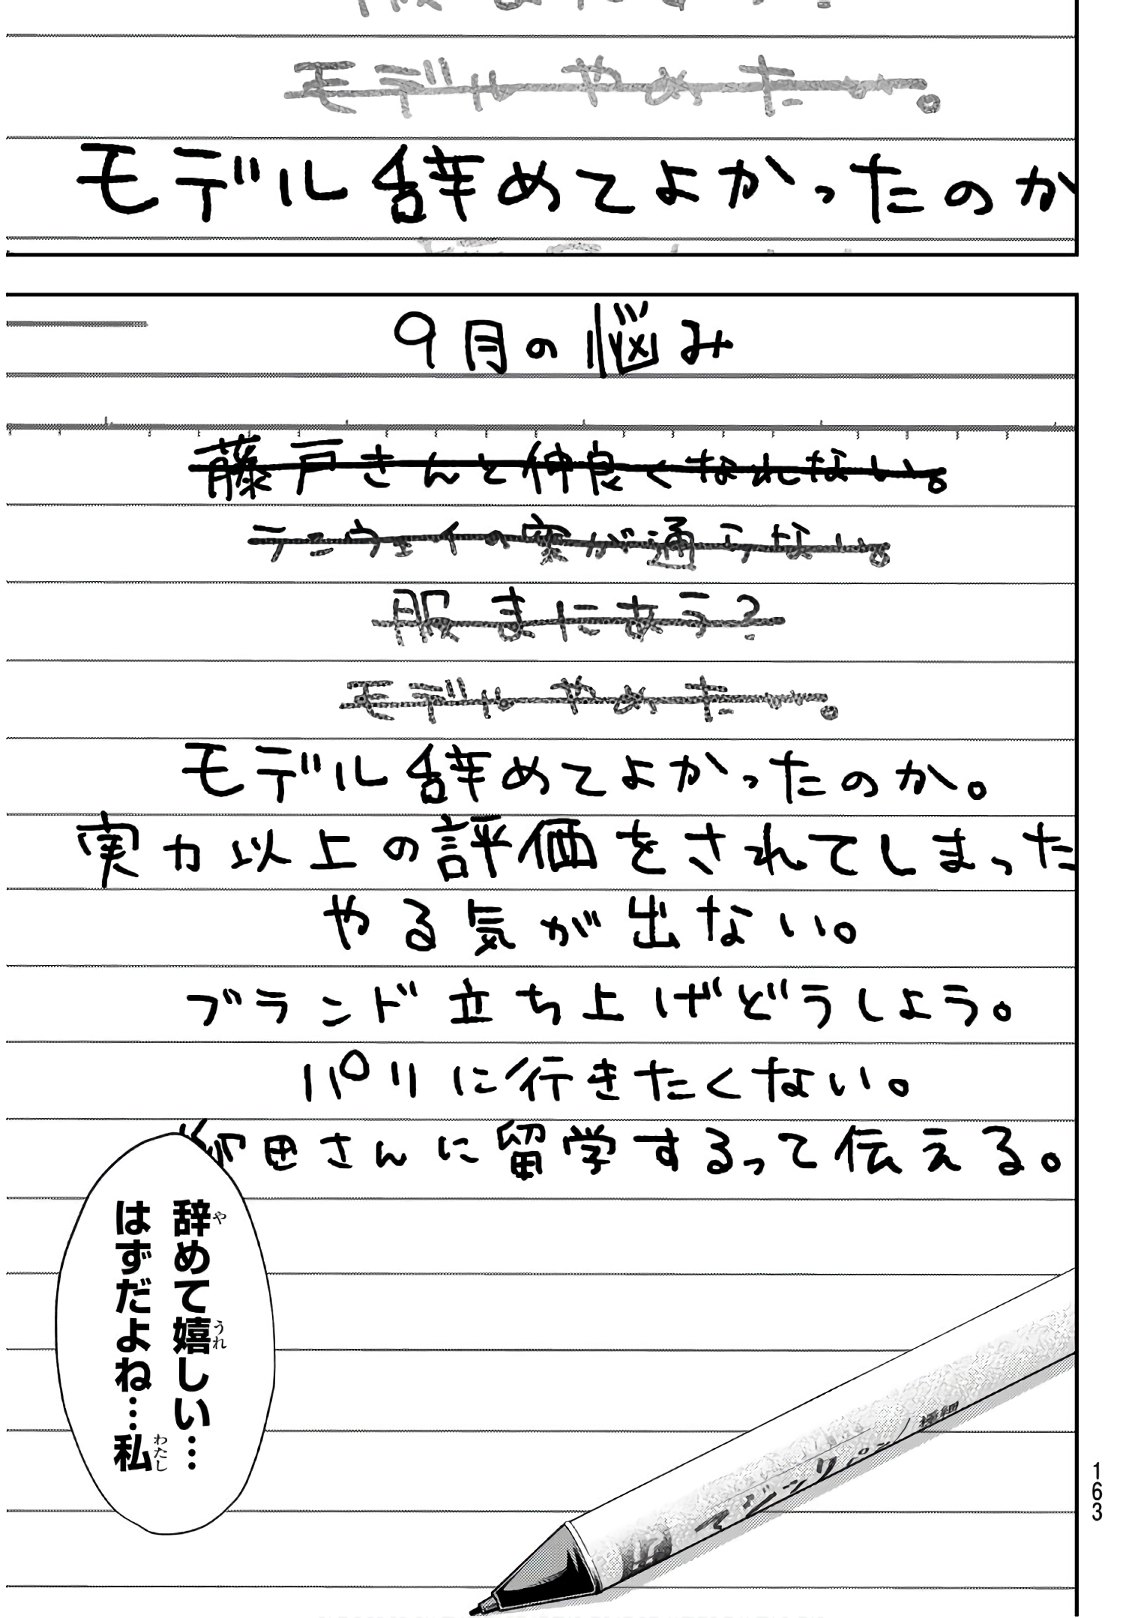 服まにあう?
モデルやめたい。
モデル辞めてよかったのか
9月の悩み
藤戸さんと仲良くなれない。
ランウェイの案が通らない。
服まにあう?
モデルやめたい。
モデル辞めてよかったのか。
実力以上の評価をされてしまった
やる気が出ない。
ブランド立ち上げどうしよう。
パリに行きたくない。
柳田さんに留学するって伝える。
辞めて嬉しい…
はずだよね…私
や
うれ
わたし
マジックペン/極細
163